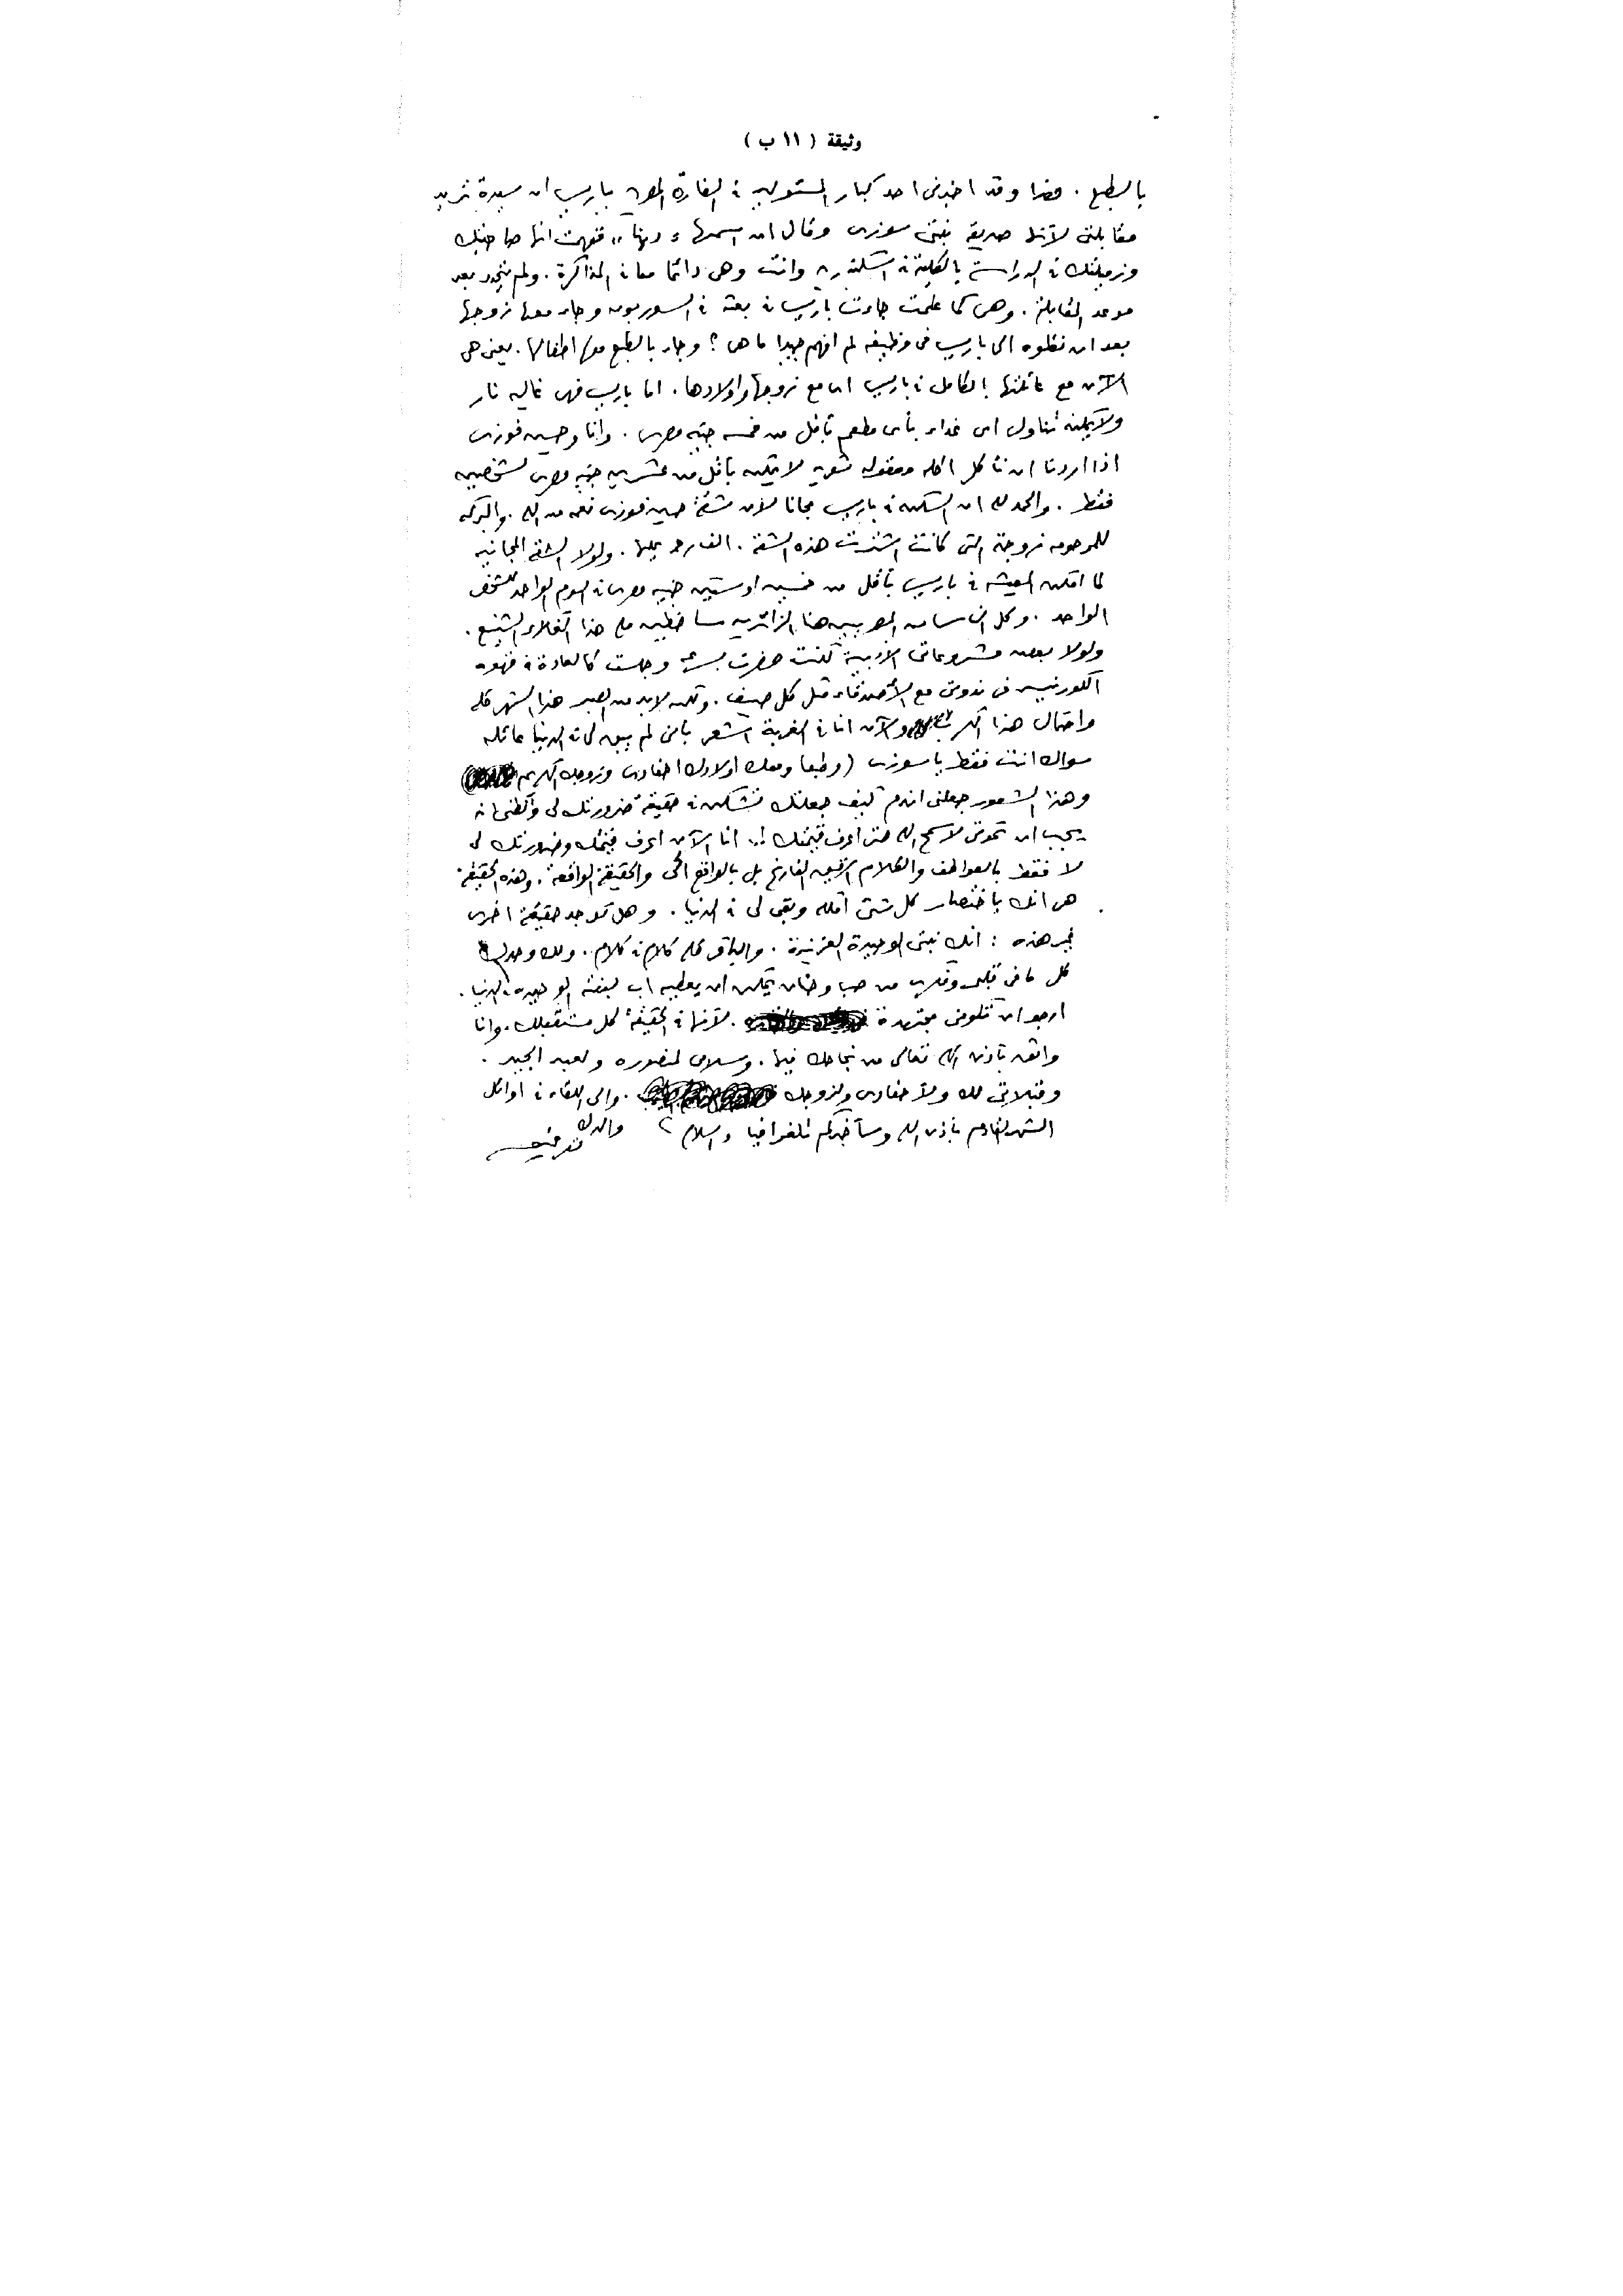 وثيقة ( ١١ ب )
بالطبع . هذا وقد اخبرنى احد كبار المسئولين فى السفارة المصرية بباريس ان سيدة تريد
مقابلتى لأنها صديقة بنتى سوزى وقال ان اسمها « دينا » ففهمت انها صاحبتك
وزميلتك فى الدراسة بالكلية فى اسكندرية وانت وهى دائما معا فى المذاكرة . ولم يتحدد بعد
موعد المقابلة . وهى كما علمت جاءت باريس فى بعثة فى السوربون وجاء معها زوجها
بعد ان نقلوه الى باريس فى وظيفه لم افهم جيدا ما هى ؟ وجاء بالطبع معها اطفالها . يعنى هى
الآن مع عائلتها بالكامل فى باريس اى مع زوجها واولادها . اما باريس فهى غاليه نار
ولا يمكنه تناول اى غداء بأى مطعم بأقل من خمسه جنيه مصرى . وانا وحسين فوزى
اذا اردنا ان نأكل اكله معقوله شويه لا يمكن بأقل من عشرين جنيه مصرى لشخصين
فقط . والحمد لله ان السكن فى باريس مجانا لأن شقة حسين فوزى نعمه من الله . والبركه
للمرحومه زوجته التى كانت اشترت هذه الشقة . الف رحمه عليها . ولولا الشقه المجانيه
لما امكن المعيشه فى باريس بأقل من خمسين او ستين جنيه مصرى فى اليوم الواحد للشخص
الواحد . وكل الناس من المصريين هنا الزائرين ساخطين على هذا الغلاء الشنيع .
ولولا بعض مشروعاتى الأدبية لكنت حضرت بسرعة وجلست كالعادة فى قهوه
الكورنيش فى ندوتى مع الأصدقاء مثل كل صيف . ولكن لابد من الصبر هذا الشهر كله
واحتمال هذا الكرب والآن انا فى الغربة اشعر بأنى لم يبق لى فى الدنيا عائله
سواك انت فقط يا سوزى ( وطبعا ومعك اولادك احفادى وزوجك الكريم
وهذا الشعور جعلنى اندم كيف جعلتك تتشككين فى حقيقة ضرورتك لى وكأننى انه
يجب ان تموتى لا سمح الله حتى اعرف قيمتك !.. انا الآن اعرف قيمتك وضرورتك لى
لا فقط بالعواطف والكلام الرقيق الفارغ بل بالواقع الحى والحقيقة الواقعة . وهذه الحقيقة
هى انك باختصار كل شىء املكه وبقى لى فى الدنيا . وهل توجد حقيقة اخرى
غير هذه : انك بنتى الوحيدة العزيزة . والباقى كله كلام فى كلام . ولك وحدك
كل ما فى قلبى وفكرى من حب وحنان يمكن ان يعطيه اب لبنته الوحيده فى الدنيا .
ارجو ان تكونى مجتهدة . لأنها فى الحقيقة كل مستقبلك . وانا
واثق باذن الله تعالى من نجاحك فيها . وسلامى لمنصوره ولعبد المجيد .
وقبلاتى لك ولأحفادى ولزوجك . والى اللقاء فى اوائل
الشهر القادم باذن الله وسأخبركم تلغرافيا والسلام ؟ والدك
توفيق